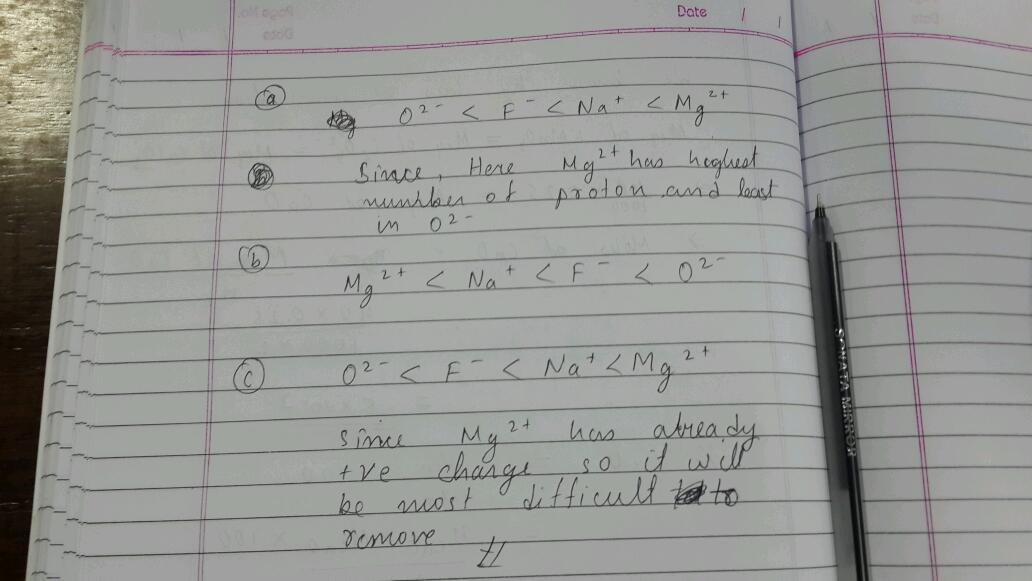 Date / /
(a) O²⁻ < F⁻ < Na⁺ < Mg²⁺
Since, Here Mg²⁺ has heghest
number of proton and least
in O²⁻
(b)
Mg²⁺ < Na⁺ < F⁻ < O²⁻
(c) O²⁻ < F⁻ < Na⁺ < Mg²⁺
since Mg²⁺ has already
+ve charge so it will
be most difficult to
remove
SONATA MIRROR